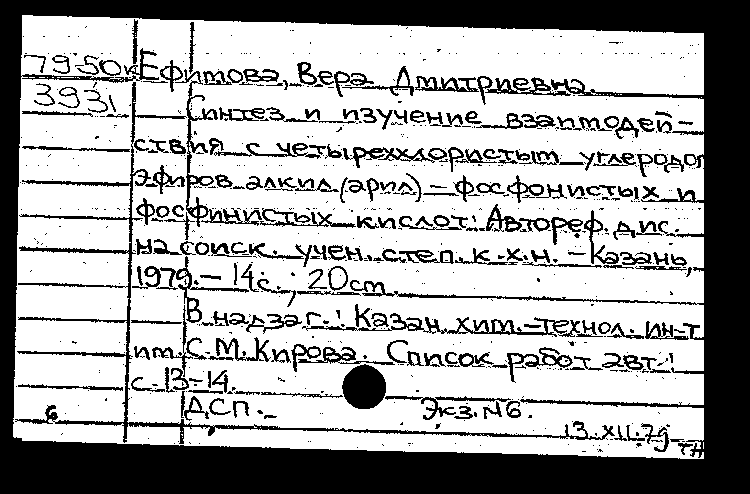 79-50к Ефимова, Вера Дмитриевна.
3931
Синтез и изучение взаимодей-
ствия с четыреххлористым углеродом
эфиров алкил(арил)-фосфонистых и
фосфинистых кислот: Автореф. дис.
на соиск. учен. степ. к.х.н. - Казань,
1979. - 14с.; 20см.
В надзаг.: Казан. хим.-технол. ин-т
им. С.М.Кирова. Список работ авт.:
с. 13-14.
ДСП. Экз. N6.
6
13.XII.79 тн